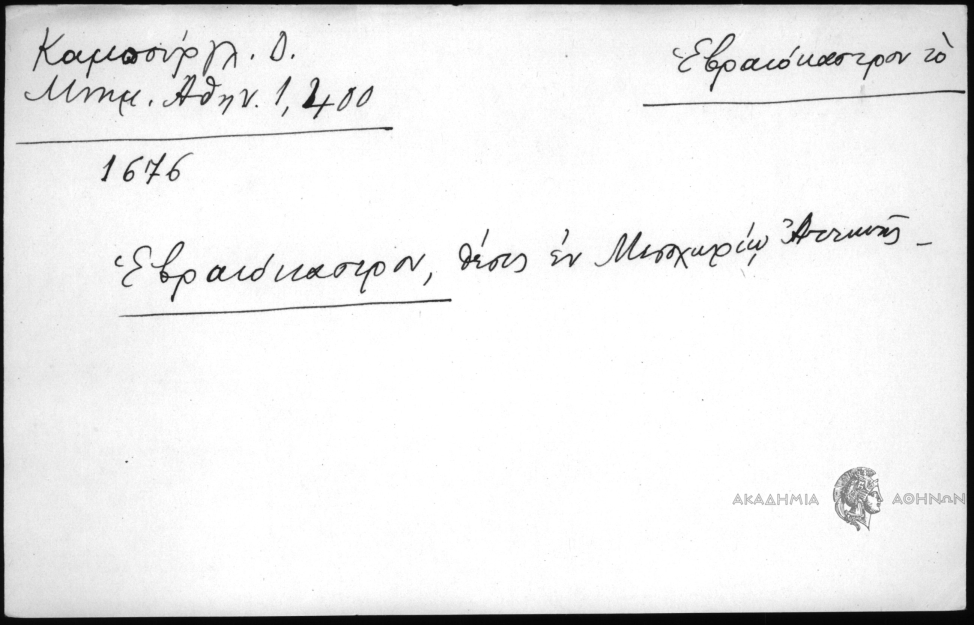 Καμπούργλ. Δ.
Μνημ. Αθην. 1, 400
Ἑβραιόκαστρον τὸ
1676
Ἑβραιόκαστρον, θέσις ἐν Μεσοχωρίῳ Ἀττικῆς –
ΑΚΑΔΗΜΙΑ ΑΘΗΝΩΝ